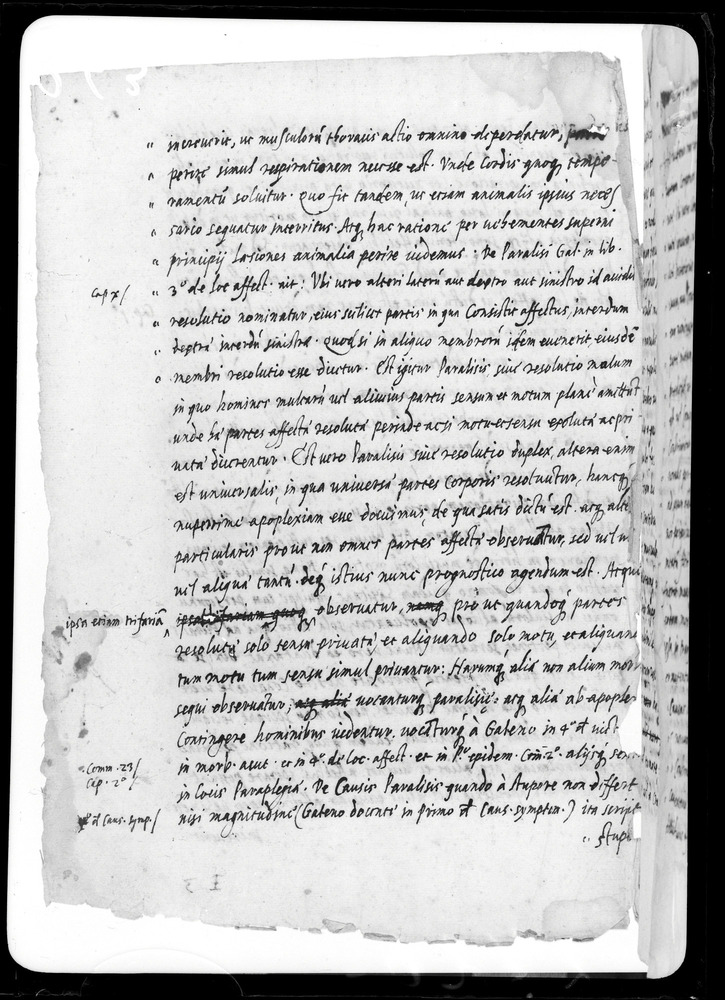 " increverit, ut musculorū thoracis actio omnino deperdatur,
" perire simul respirationem necesse est. Unde Cordis quoq; tempe-
" ramentū solvitur. Quo fit tandem ut etiam animalis ipsius neces
" sario sequatur interritus. Atq; hac ratione per vehementes superni
" principij lasiones animalia perire videmus. De Paralisi Gal. in lib.
Cap x/ " 3º de loc affect. ait: Ubi vero alteri laterū aut dextro aut sinistro id accidit
" resolutio nominatur, eius scilicet partis in qua Consistit affectus, interdum
" dextrȩ interdū sinistrȩ. Quod si in aliquo membrorū idem evenerit eiusdē
" membri resolutio esse dicetur. Est igitur Paralisis sive resolutio malum
in quo homines multarū vel alicuius partis sensum et motum planè amittūt
unde hȩ partes affectȩ resolutȩ perinde acsi motu et sensu solutȩ ac pri
vatȩ dicerentur. Est vero Paralisis sive resolutio duplex, altera enim
est universalis, in qua universȩ partes Corporis resolvuntur, hancq;
nuperrime apoplexiam esse docuimus, de qua satis dictū est. atq; alte
particularis prout non omnes partes affectȩ observātur, sed vel
vel aliqua tantū. deq; istius nunc prognostico agendum est. Atqui
ipsa etiam trifariā observatur, pro ut quandoq; partes
resolutȩ solo sensu privatȩ, et aliquando solo motu, et aliquan
tum motu tum sensu simul privantur: Harumq; aliȩ non alium mor
sequi observatur, vocanturq; paralisis: atq; aliȩ ab apople
Contingere hominibus videntur, vocāturq; à Galeno in 4º de vict
Comm. 23/ in morb. acut. et in 4º. de loc. affect. et in Pº epidem. Cōm. 2º. alijsq; sen
Cap. 2º/ in locis Paraplegia. De Causis Paralisis quando à stupore non differt
de Caus. symp./ nisi magnitudine (Galeno docente in primo de Caus. symptom.) ita script
" stup